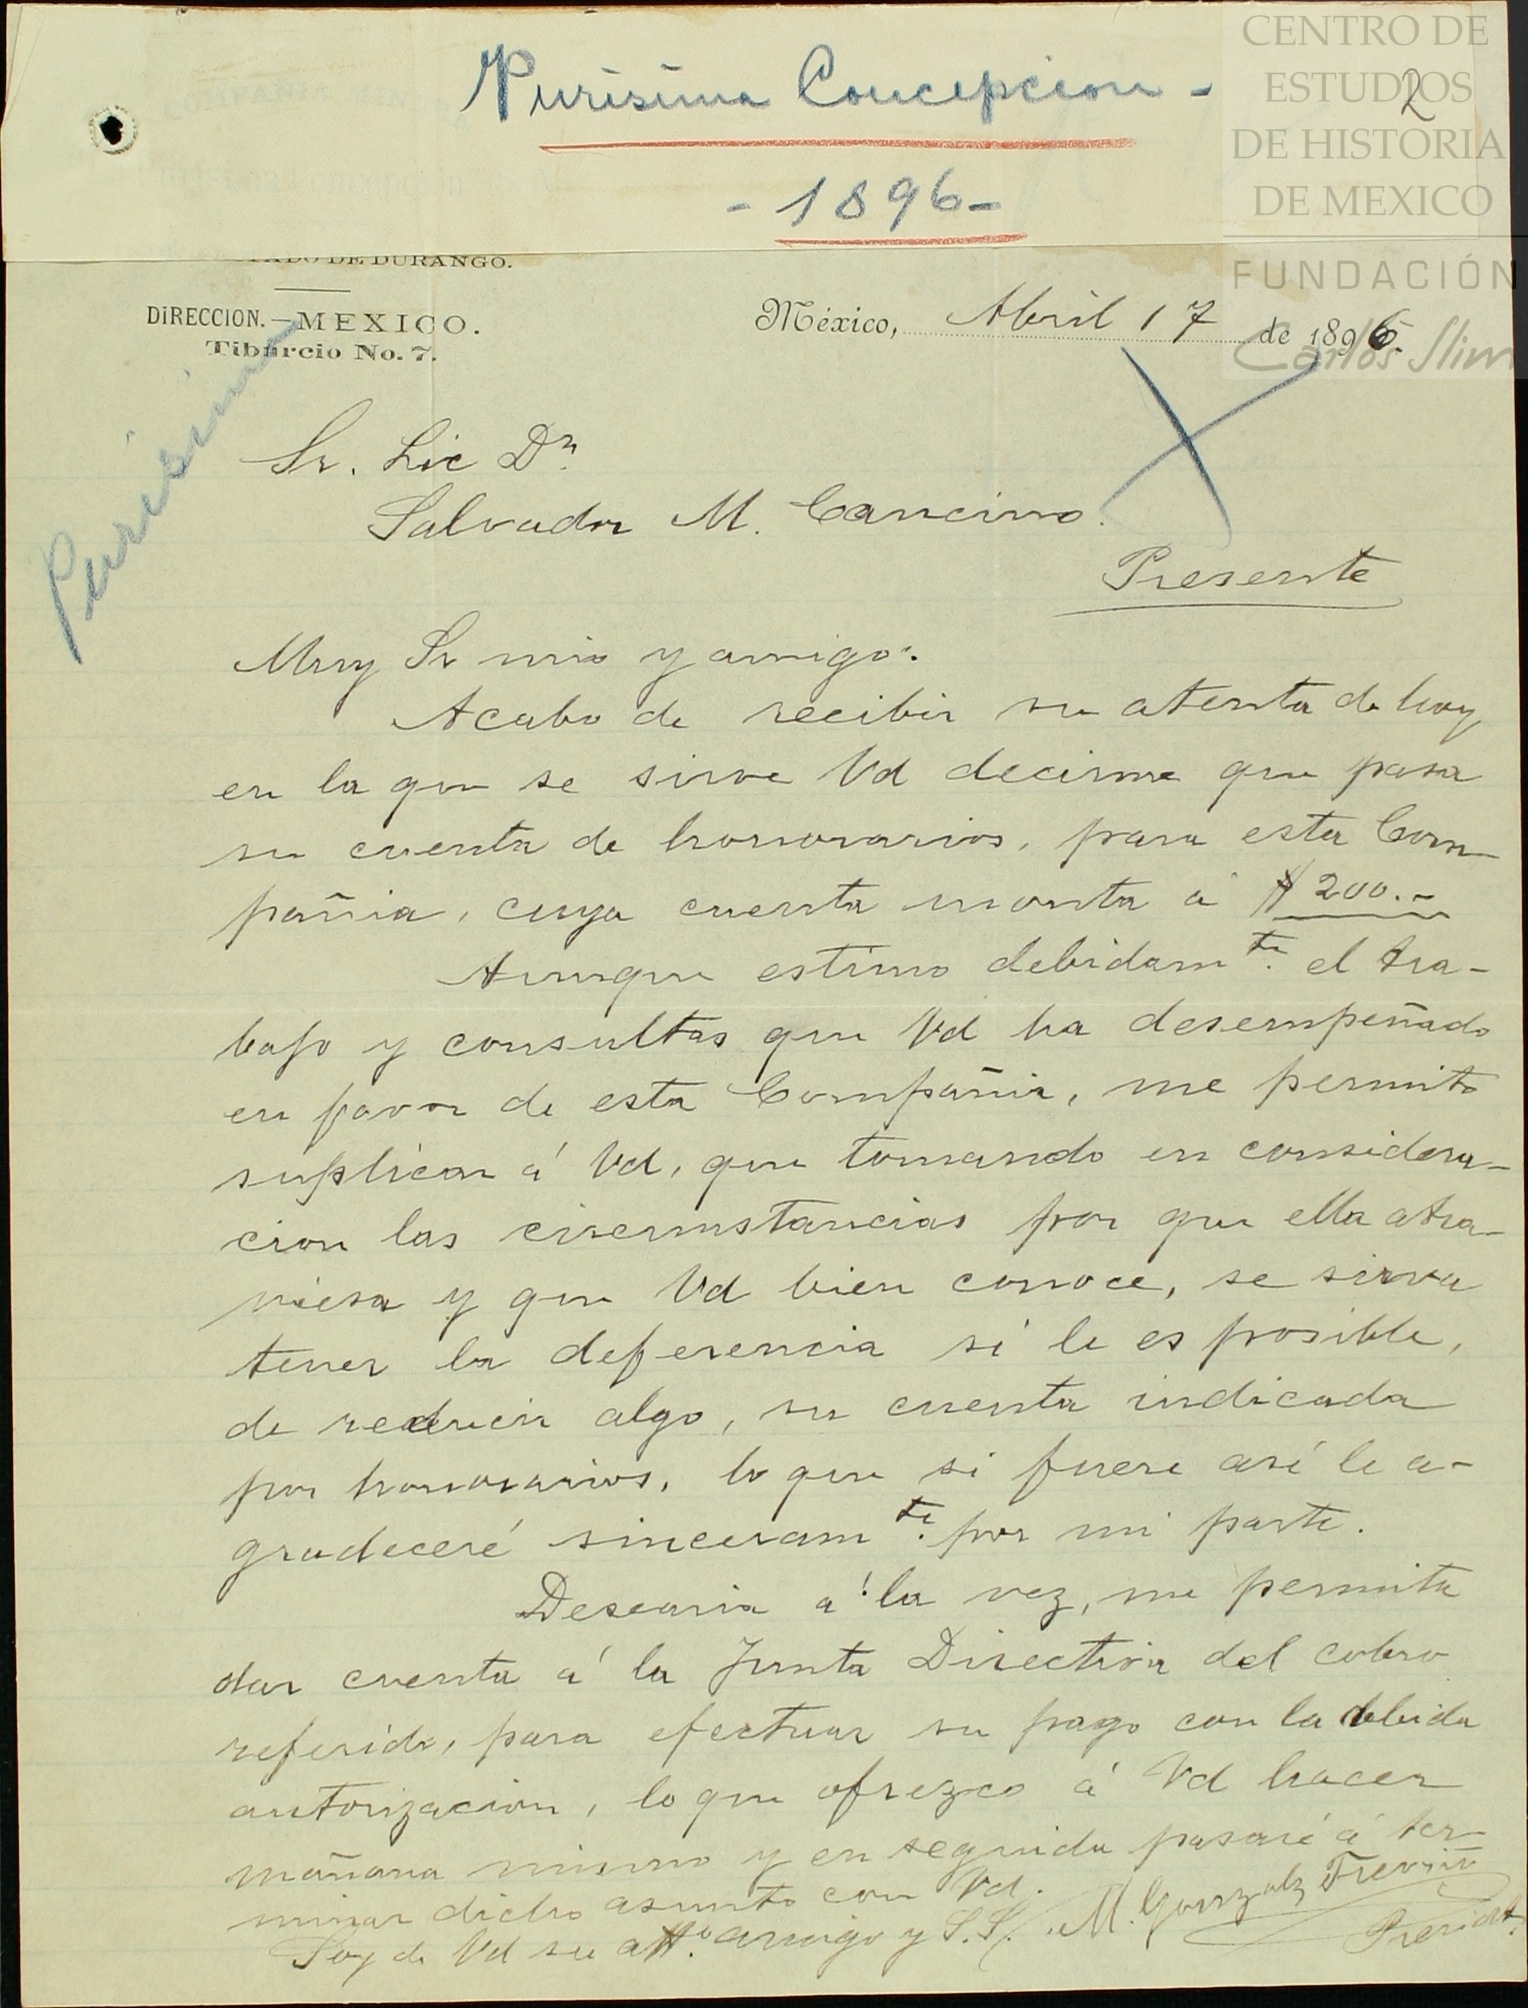 Purisima Concepcion -
2
- 1896 -
CENTRO DE
ESTUDIOS
DE HISTORIA
DE MEXICO
FUNDACIÓN
Carlos Slim
DE DURANGO.
DIRECCION.—MEXICO.
Tiburcio No. 7.
México, Abril 17 de 1896.
Purisima
Sr. Lic Dn.
Salvador M. Cancino.
Presente
Muy Sr mio y amigo:
Acabo de recibir su atenta de hoy
en la que se sirve Vd decirme que pasa
su cuenta de honorarios, para esta Com-
pañia, cuya cuenta monta á $200.-
Aunque estimo debidamte. el tra-
bajo y consultas que Vd ha desempeñado
en favor de esta Compañia, me permito
suplicar á Vd, que tomando en considera-
cion las circunstancias por que ella atra-
viesa y que Vd bien conoce, se sirva
tener la deferencia si le es posible,
de reducir algo, su cuenta indicada
por honorarios, lo que si fuere asi le a-
gradeceré sinceramte. por mi parte.
Desearia á la vez, me permita
dar cuenta á la Junta Directiva del cobro
referido, para efectuar su pago con la debida
autorizacion, lo que ofrezco á Vd hacer
mañana mismo y en seguida pasaré á ter-
minar dicho asunto con Vd.
Soy de Vd su atto. amigo y S.S. M. Gonzalz Treviño
Presidte.